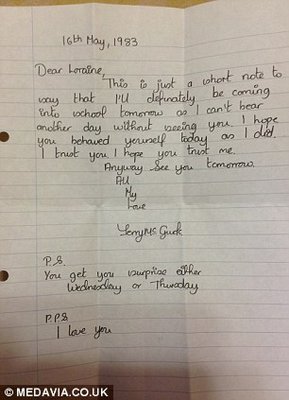 16th May, 1983
Dear Loraine,
This is just a short note to
say that I'll definately be coming
into school tomorrow as I can't bear
another day without seeing you. I hope
you behaved yourself today as I did.
I trust you I hope you trust me.
Anyway See you tomorrow.
All
My
Love
Terry Mc Guck
P.S.
You get you surprise either
Wednesday or Thursday
P.P.S
I love you
© MEDAVIA.CO.UK